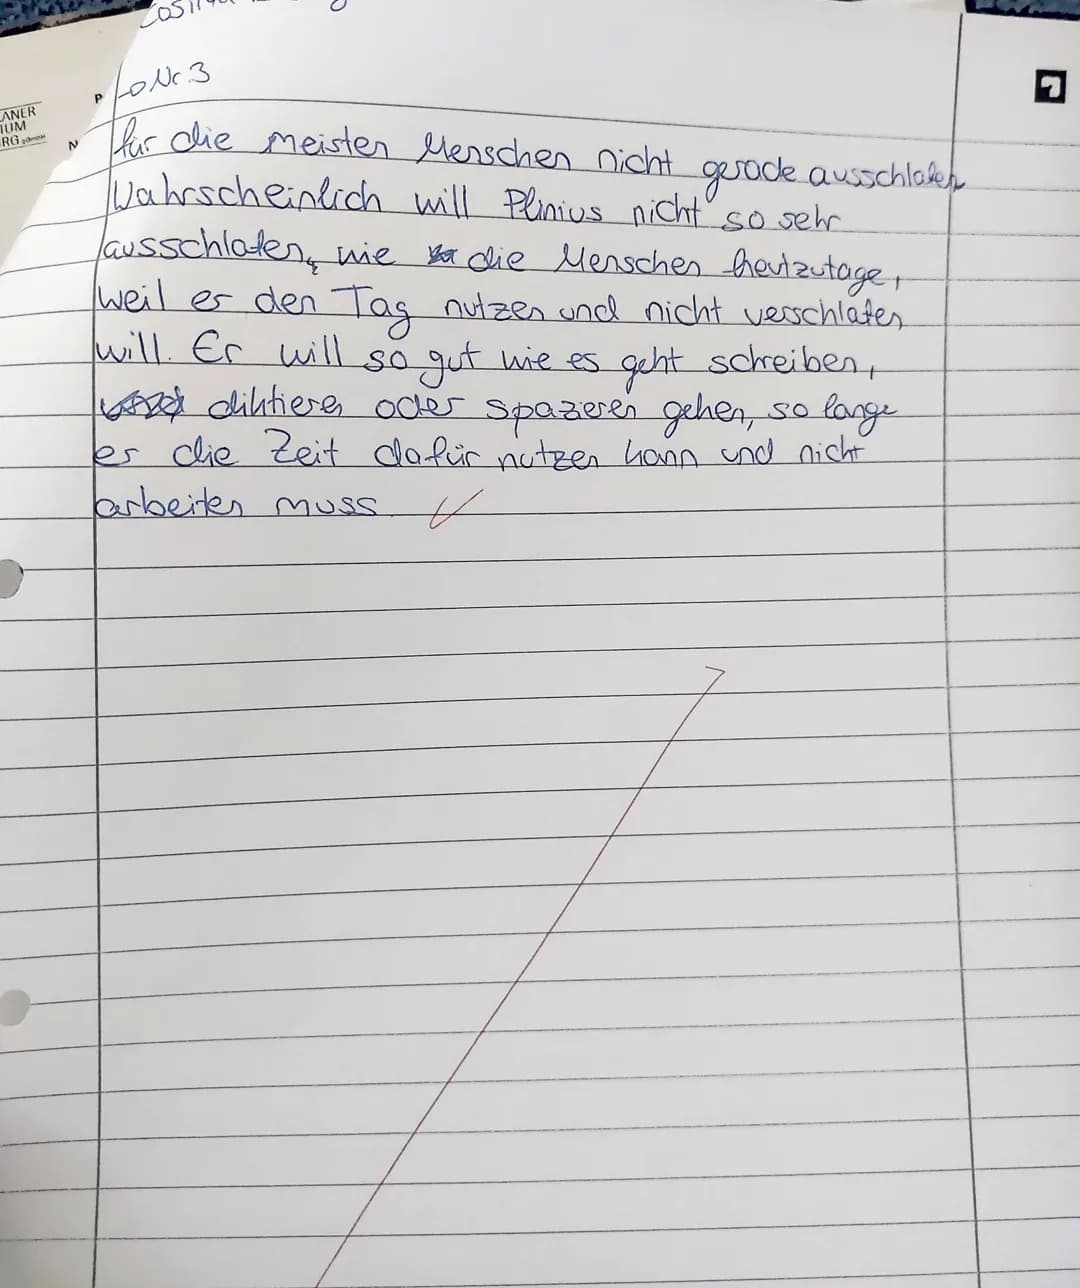 → Nr. 3
für die meisten Menschen nicht gerade ausschlafen
Wahrscheinlich will Plinius nicht so sehr
ausschlafen, wie die Menschen heutzutage,
weil er den Tag nutzen und nicht verschlafen
will. Er will so gut wie es geht schreiben,
diktieren oder spazieren gehen, so lange
er die Zeit dafür nutzen kann und nicht
arbeiten muss.